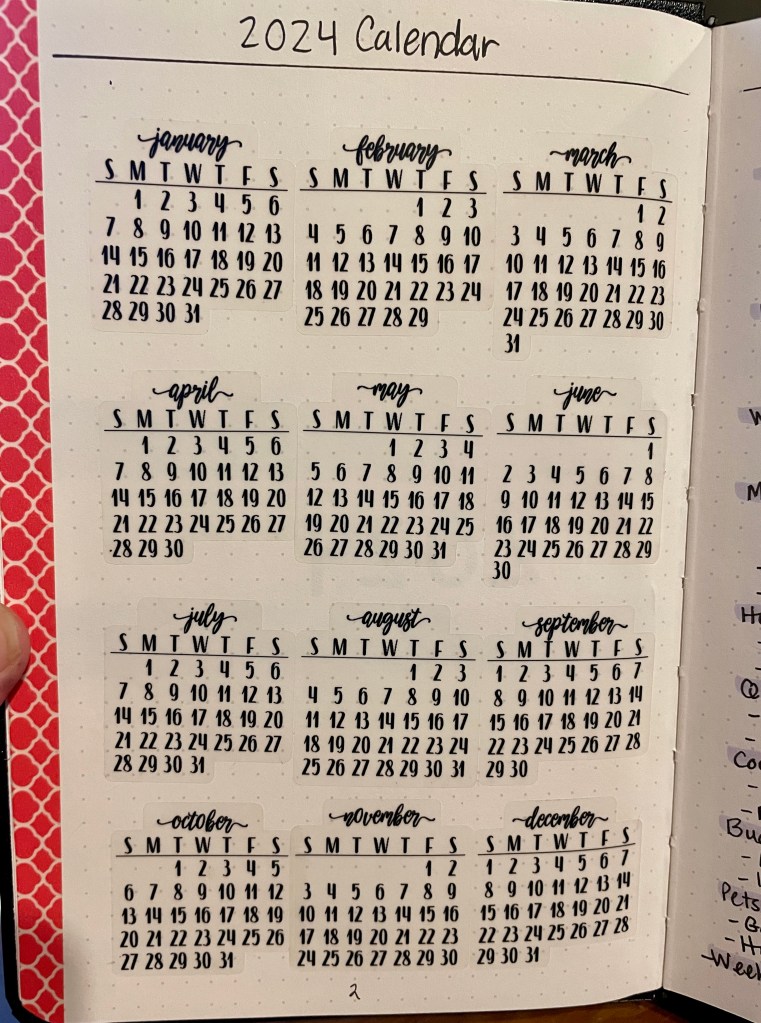 2024 Calendar
january
S M T W T F S
1 2 3 4 5 6
7 8 9 10 11 12 13
14 15 16 17 18 19 20
21 22 23 24 25 26 27
28 29 30 31
february
S M T W T F S
1 2 3
4 5 6 7 8 9 10
11 12 13 14 15 16 17
18 19 20 21 22 23 24
25 26 27 28 29
march
S M T W T F S
1 2
3 4 5 6 7 8 9
10 11 12 13 14 15 16
17 18 19 20 21 22 23
24 25 26 27 28 29 30
31
april
S M T W T F S
1 2 3 4 5 6
7 8 9 10 11 12 13
14 15 16 17 18 19 20
21 22 23 24 25 26 27
28 29 30
may
S M T W T F S
1 2 3 4
5 6 7 8 9 10 11
12 13 14 15 16 17 18
19 20 21 22 23 24 25
26 27 28 29 30 31
june
S M T W T F S
1
2 3 4 5 6 7 8
9 10 11 12 13 14 15
16 17 18 19 20 21 22
23 24 25 26 27 28 29
30
july
S M T W T F S
1 2 3 4 5 6
7 8 9 10 11 12 13
14 15 16 17 18 19 20
21 22 23 24 25 26 27
28 29 30 31
august
S M T W T F S
1 2 3
4 5 6 7 8 9 10
11 12 13 14 15 16 17
18 19 20 21 22 23 24
25 26 27 28 29 30 31
september
S M T W T F S
1 2 3 4 5 6 7
8 9 10 11 12 13 14
15 16 17 18 19 20 21
22 23 24 25 26 27 28
29 30
october
S M T W T F S
1 2 3 4 5
6 7 8 9 10 11 12
13 14 15 16 17 18 19
20 21 22 23 24 25 26
27 28 29 30 31
november
S M T W T F S
1 2
3 4 5 6 7 8 9
10 11 12 13 14 15 16
17 18 19 20 21 22 23
24 25 26 27 28 29 30
december
S M T W T F S
1 2 3 4 5 6 7
8 9 10 11 12 13 14
15 16 17 18 19 20 21
22 23 24 25 26 27 28
29 30 31
2
Pets